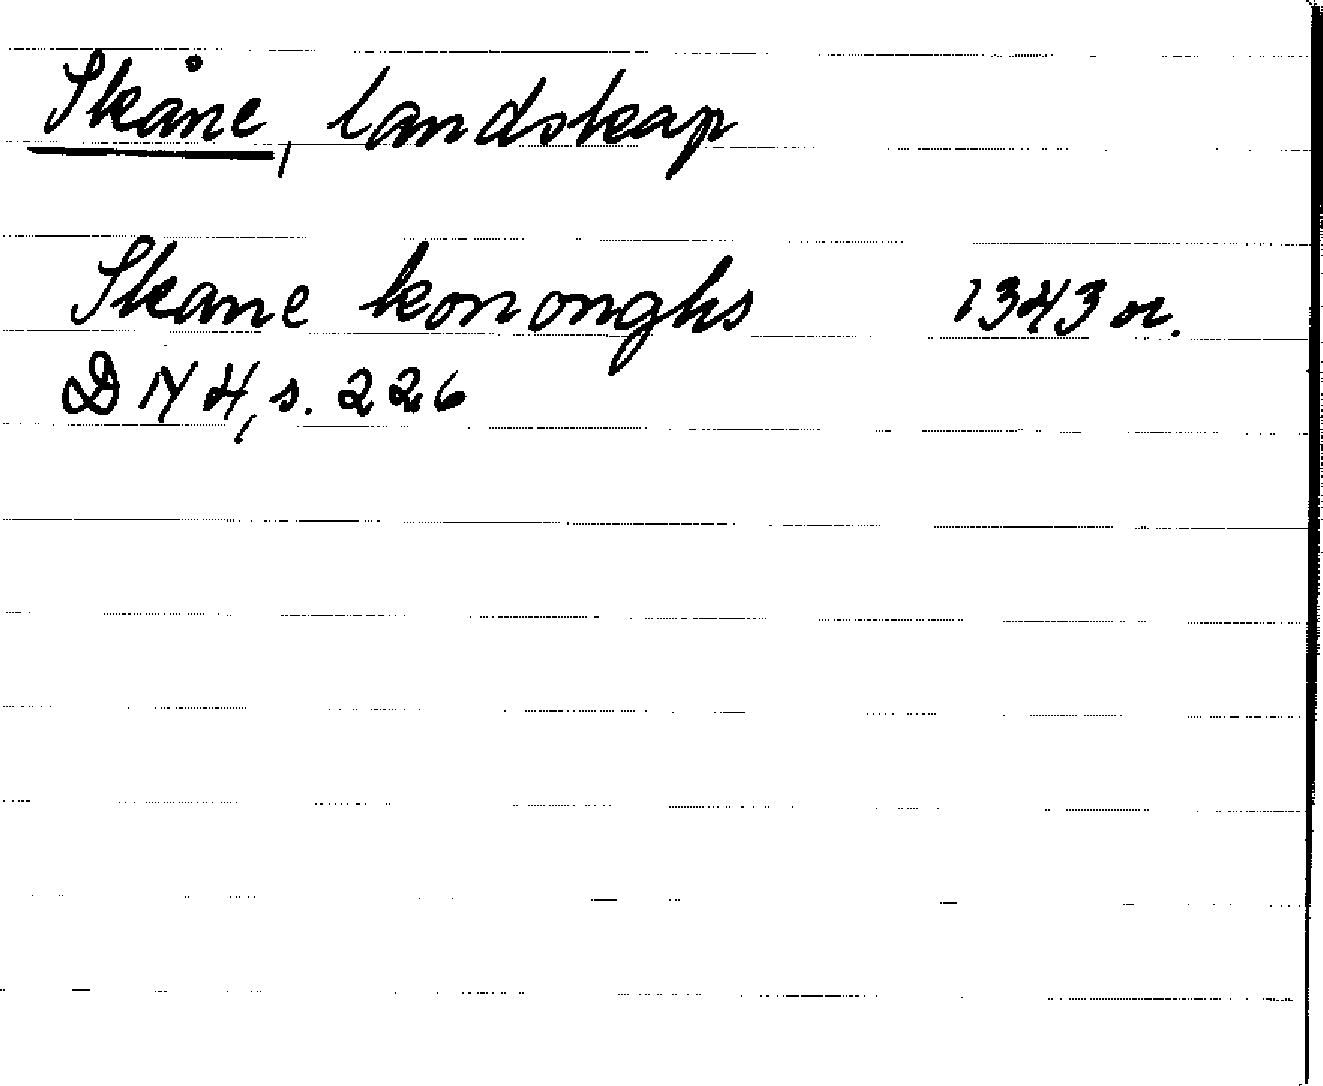 Skåne, landskap
Skane kononghs 1343 or.
DN 4, s. 226